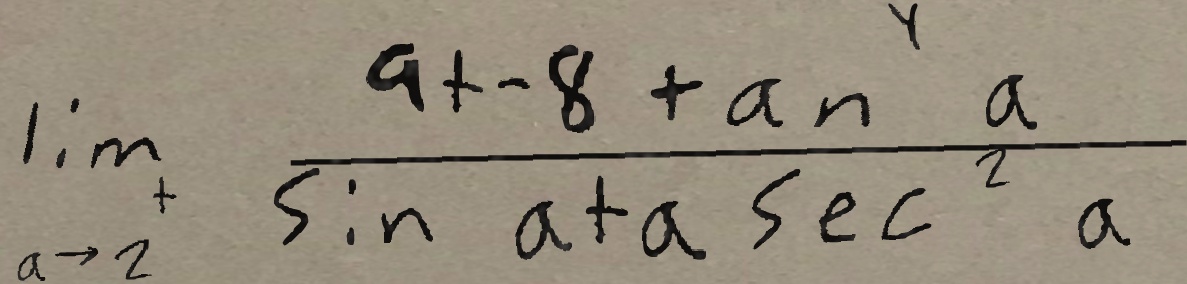 lim a→2⁺ (9+-8 tan^Y a)/(sin a+a sec² a)